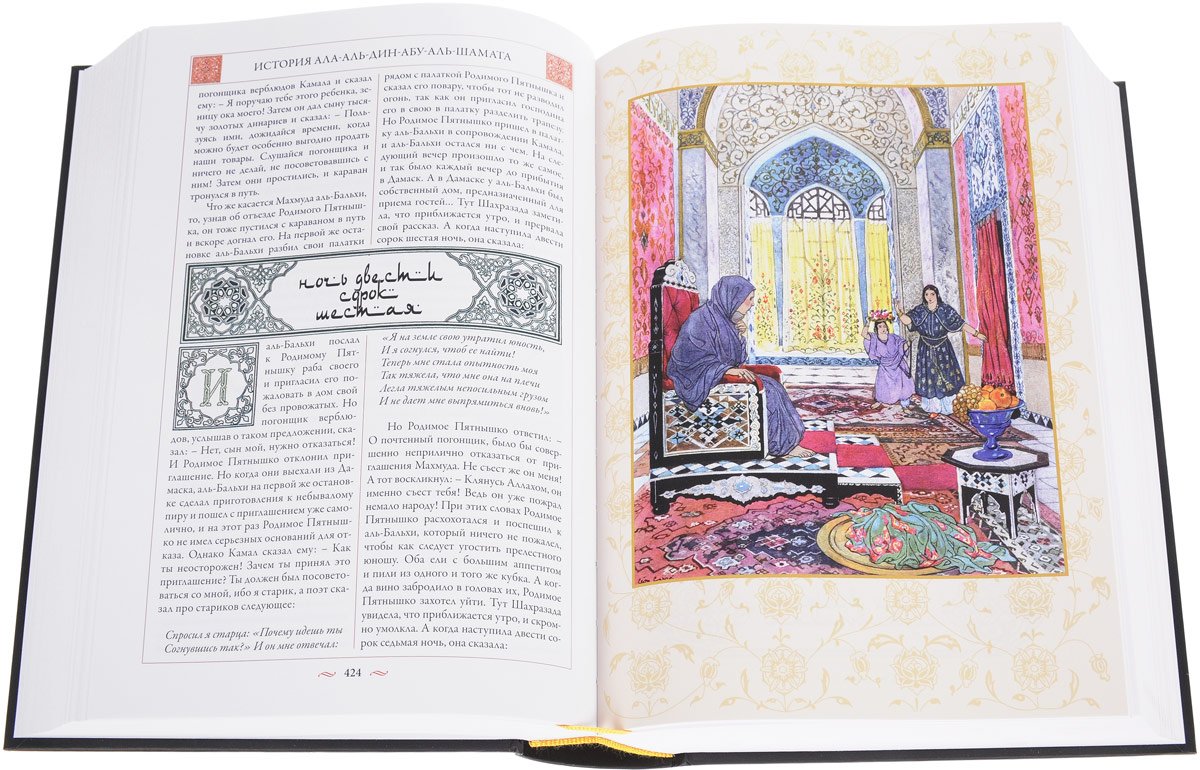 ИСТОРИЯ АЛА-АЛЬ-ДИН-АБУ-АЛЬ-ШАМАТА
погонщика верблюдов Камала и сказал
ему: – Я поручаю тебе этого ребенка, зе-
ницу ока моего! Затем он дал сыну тыся-
чу золотых динариев и сказал: – Поль-
зуясь ими, дожидайся времени, когда
можно будет особенно выгодно продать
наши товары. Слушайся погонщика и
ничего не делай, не посоветовавшись с
ним! Затем они простились, и караван
тронулся в путь.
Что же касается Махмуда аль-Бальхи,
то, узнав об отъезде Родимого Пятныш-
ка, он тоже пустился с караваном в путь
и вскоре догнал его. На первой же оста-
новке аль-Бальхи разбил свои палатки
рядом с палаткой Родимого Пятнышка и
сказал его повару, чтобы тот не разводил
огонь, так как он пригласил господина
его в свою палатку разделить трапезу.
Но Родимое Пятнышко пришел в палат-
ку аль-Бальхи в сопровождении Камала,
и аль-Бальхи остался ни с чем. На сле-
дующий вечер произошло то же самое,
и так было каждый вечер до прибытия
в Дамаск. А в Дамаске у аль-Бальхи был
собственный дом, предназначенный для
приема гостей... Тут Шахразада замети-
ла, что приближается утро, и прервала
свой рассказ. А когда наступила двести
сорок шестая ночь, она сказала:
ночь двести
сорок
шестая
И
аль-Бальхи послал
к Родимому Пят-
нышку раба своего
и пригласил его по-
жаловать в дом свой
без провожатых. Но
погонщик верблю-
дов, услышав о таком предложении, ска-
зал: – Нет, сын мой, нужно отказаться!
И Родимое Пятнышко отклонил при-
глашение. Но когда они выехали из Да-
маска, аль-Бальхи на первой же останов-
ке сделал приготовления к небывалому
пиру и пошел с приглашением уже само-
лично, и на этот раз Родимое Пятныш-
ко не имел серьезных оснований для от-
каза. Однако Камал сказал ему: – Как
ты неосторожен! Зачем ты принял это
приглашение? Ты должен был посовето-
ваться со мной, ибо я старик, а поэт ска-
зал про стариков следующее:
Спросил я старца: «Почему идешь ты
Согнувшись так?» И он мне отвечал:
«Я на земле свою утратил юность,
И я согнулся, чтоб ее найти!
Теперь мне стала опытность моя
Так тяжела, что мне она на плечи
Легла тяжелым непосильным грузом
И не дает мне выпрямиться вновь!»
Но Родимое Пятнышко ответил: –
О почтенный погонщик, было бы совер-
шенно неприлично отказаться от при-
глашения Махмуда. Не съест же он меня!
А тот воскликнул: – Клянусь Аллахом, он
именно съест тебя! Ведь он уже пожрал
немало народу! При этих словах Родимое
Пятнышко расхохотался и поспешил к
аль-Бальхи, который ничего не пожалел,
чтобы как следует угостить прелестного
юношу. Оба ели с большим аппетитом
и пили из одного и того же кубка. А ког-
да вино забродило в головах их, Родимое
Пятнышко захотел уйти. Тут Шахразада
увидела, что приближается утро, и скром-
но умолкла. А когда наступила двести со-
рок седьмая ночь, она сказала:
424